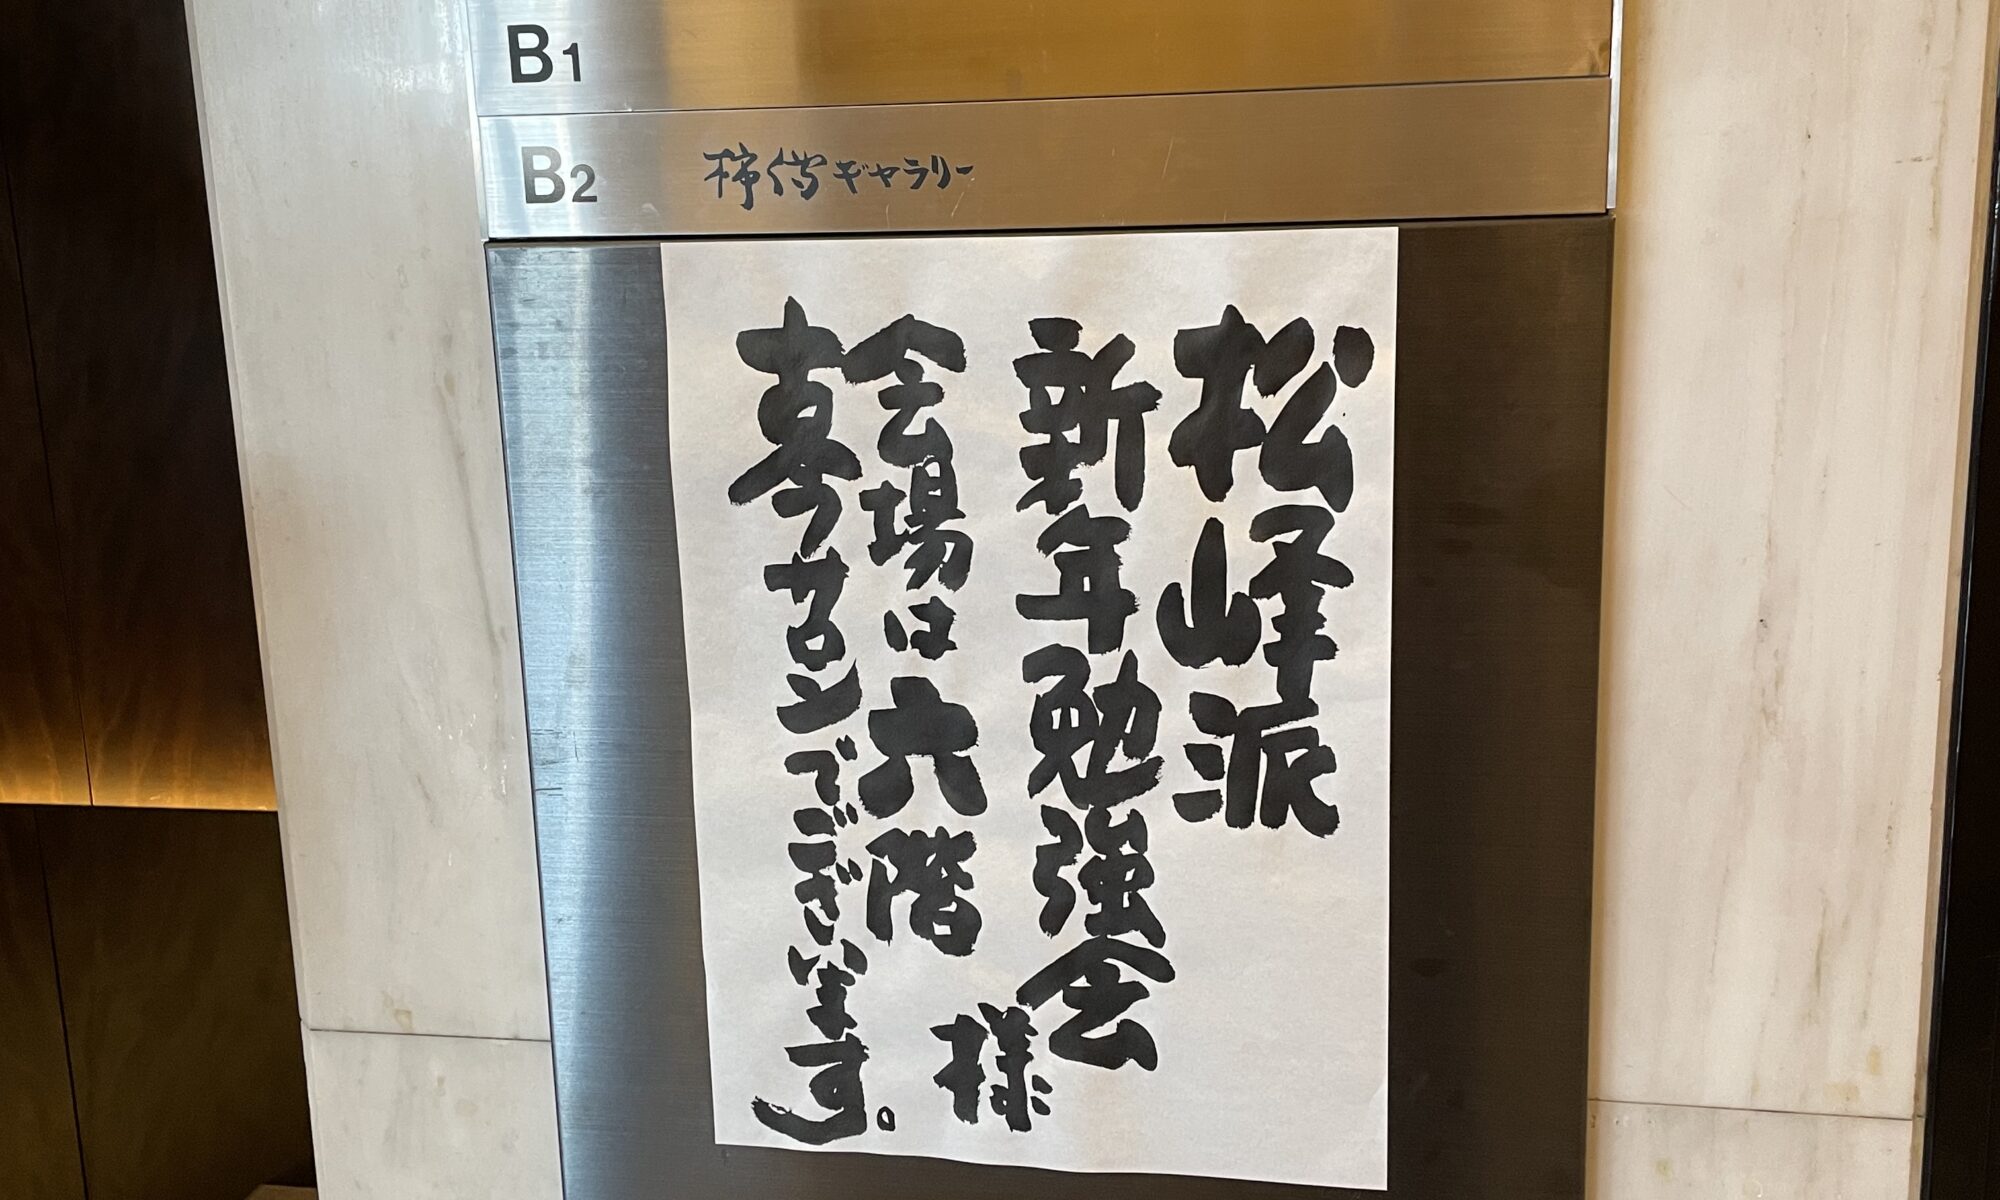 B1
B2 柿傳ギャラリー
松峰派
新年勉強会 様
会場は六階
古今サロンでございます。